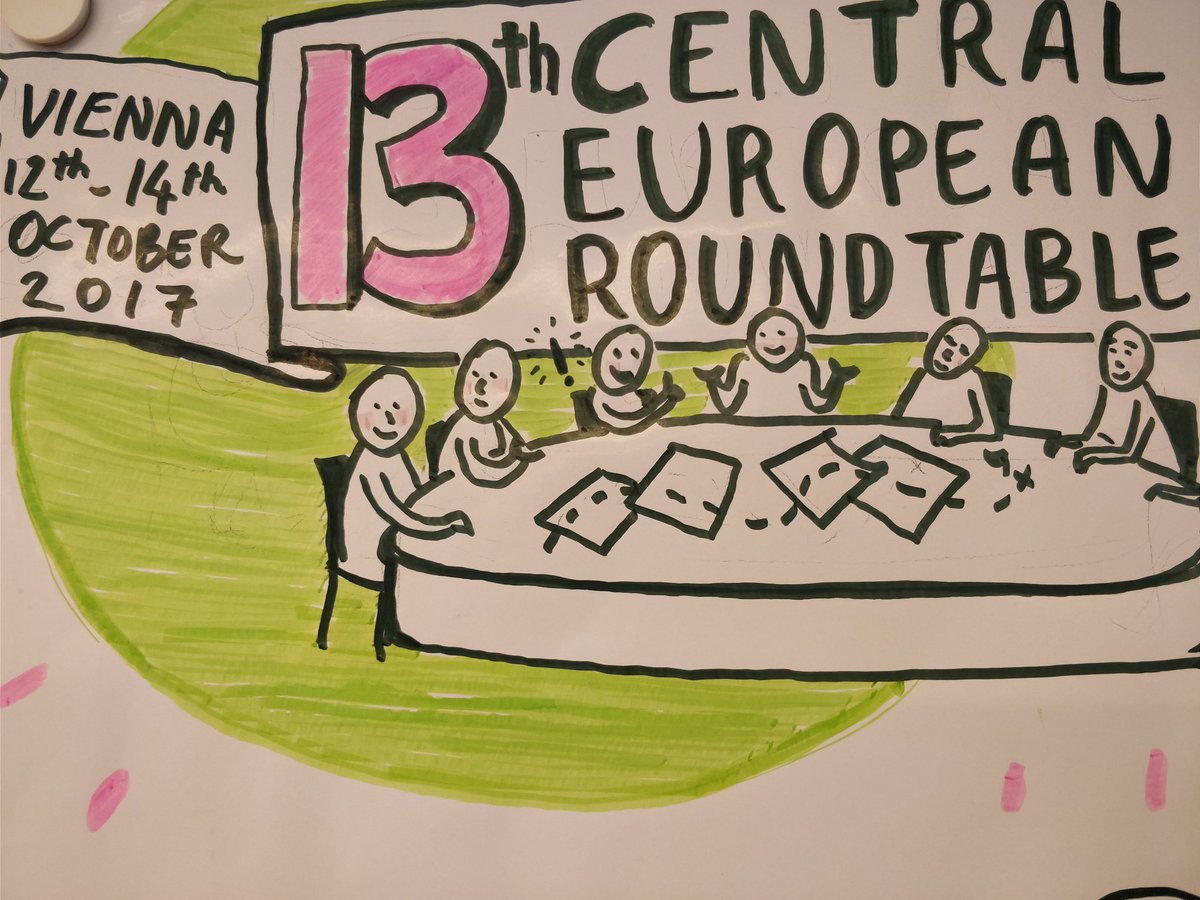 VIENNA
12th - 14th
OCTOBER
2017
13th CENTRAL
EUROPEAN
ROUNDTABLE